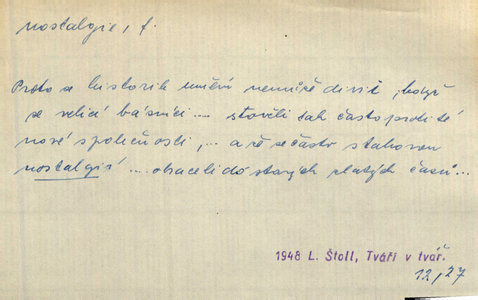 nostalgie, f.
Proto se historik umění nemůže divit, když
se velicí básníci ... stavěli tak často proti té
nové společnosti, ... a že se často s takovou
nostalgií ... obraceli do starých zlatých časů...
1948 L. Štoll, Tváří v tvář.
12/27